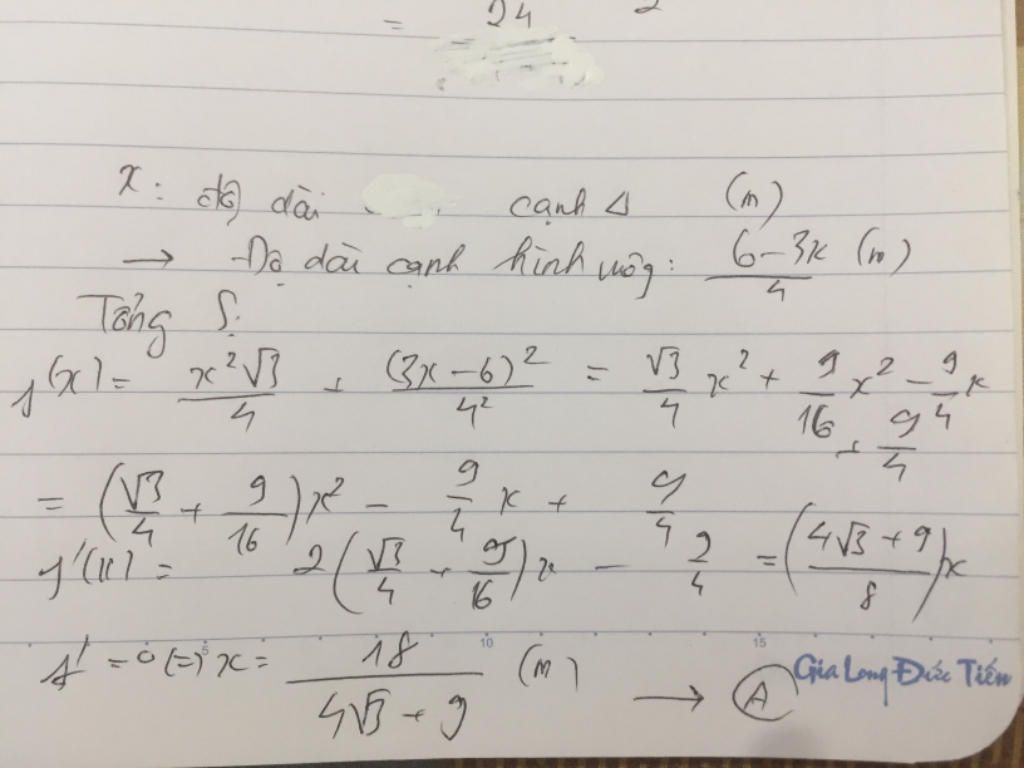 = 24 2
x: độ dài cạnh Δ (m)
→ Độ dài cạnh hình vuôg: \frac{6-3x}{4} (m)
Tổng S:
f(x) = \frac{x^2\sqrt{3}}{4} + \frac{(3x-6)^2}{4^2} = \frac{\sqrt{3}}{4}x^2 + \frac{9}{16}x^2 - \frac{9}{4}x + \frac{9}{4}
= (\frac{\sqrt{3}}{4} + \frac{9}{16})x^2 - \frac{9}{4}x + \frac{9}{4}
f'(x) = 2(\frac{\sqrt{3}}{4} + \frac{9}{16})x - \frac{9}{4} = (\frac{4\sqrt{3}+9}{8})x
5 10 15
f' = 0 (=) x = \frac{18}{4\sqrt{3}+9} (m) → A
Gia Long Đức Tiến